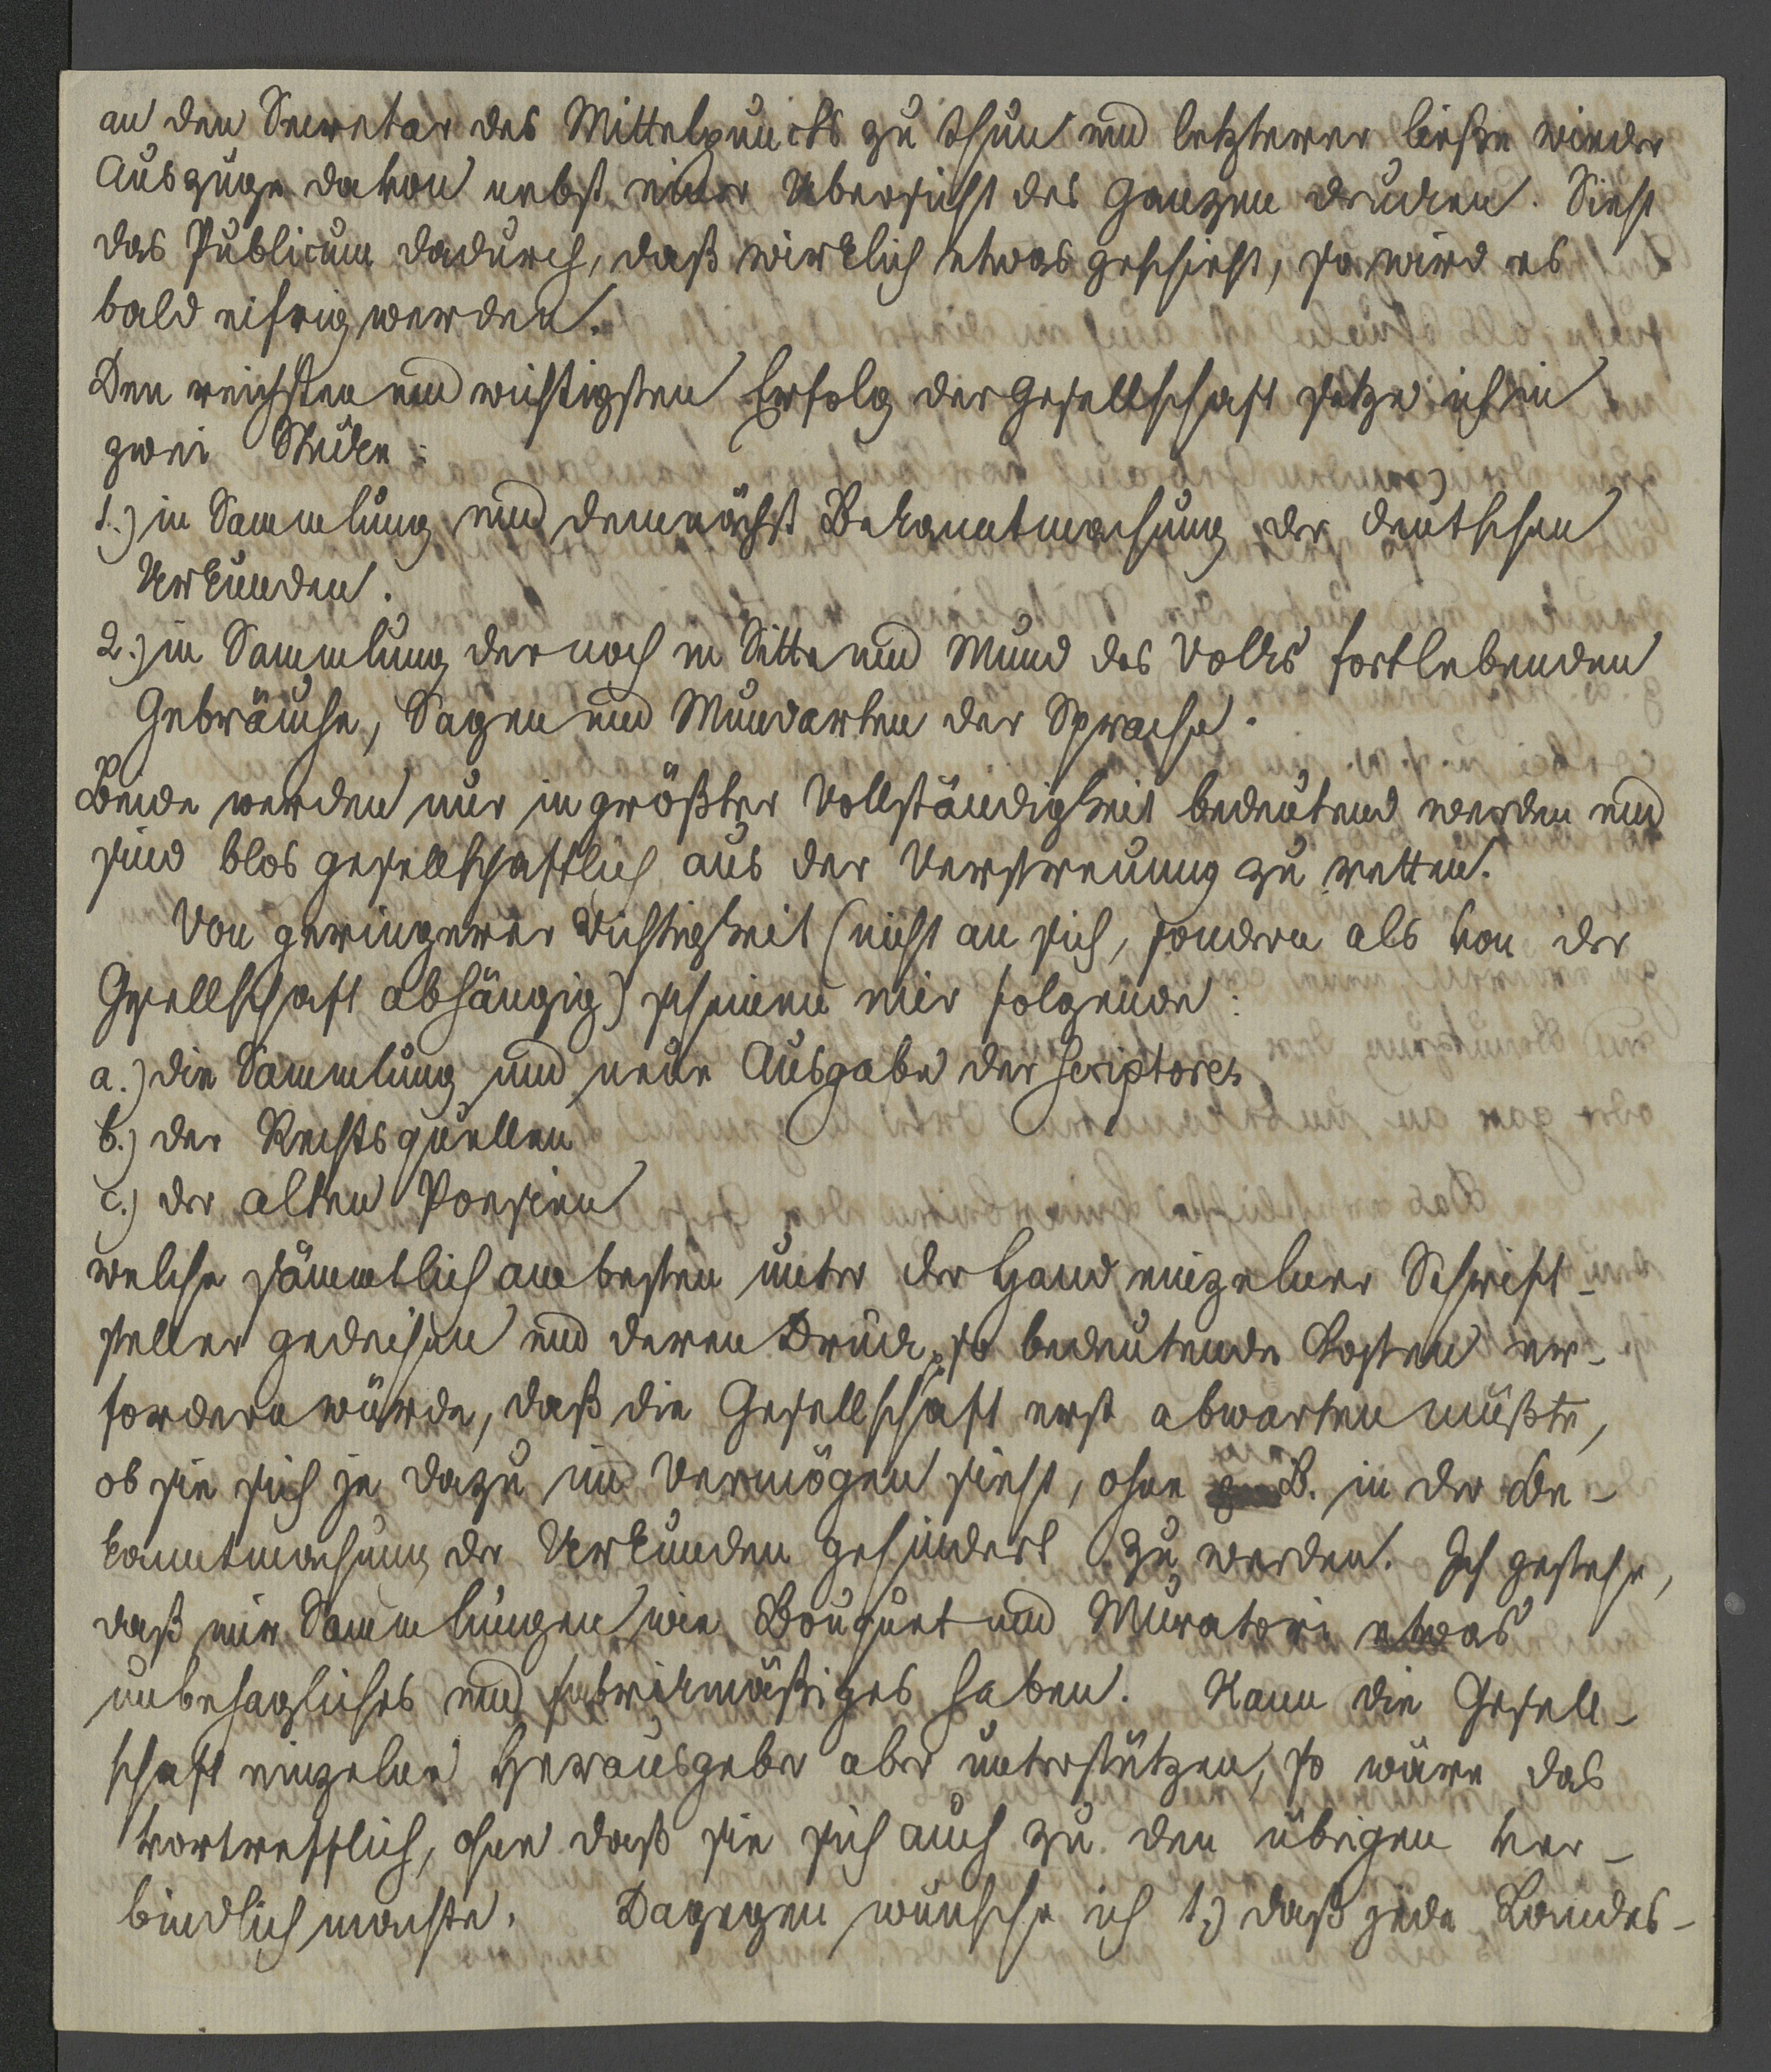 an den Secretar des Mittelpuncts zu thun und letzterer ließe wieder
Auszüge davon nebst einer Uebersicht des Ganzen drucken. Sieht
das Publicum dadurch, daß wirklich etwas geschieht, so wird es
bald eifrig werden.
Den reichsten und wichtigsten Erfolg der Gesellschaft setze ich in
zwei Stücke:
1.) in Sammlung und demnächst Bekanntmachung der deutschen
Urkunden.
2.) in Sammlung der noch in Sitte und Mund des Volks fortlebenden
Gebräuche, Sagen und Mundarten der Sprache.
Beide werden nur in größter Vollständigkeit bedeutend werden und
sind blos gesellschaftlich aus der Verstreuung zu retten.
Von geringerer Wichtigkeit (nicht an sich, sondern als von der
Gesellschaft abhängig) scheinen mir folgende:
a.) die Sammlung und neue Ausgabe der scriptores
b.) der Rechtsquellen
c.) der alten Poesien
welche sämmtlich am besten unter der Hand einzelner Schrift-
steller gedeihen und deren Druck so bedeutende Kosten er-
fordern würde, daß die Gesellschaft erst abwarten müßte,
ob sie sich je dazu im Vermögen sieht, ohne z. B. in der Be-
kanntmachung der Urkunden gehindert zu werden. Ich gestehe,
daß mir Sammlungen wie Bouquet und Muratori etwas
unbehagliches und fabrikmäßiges haben. Kann die Gesell-
schaft einzelne Herausgeber aber unterstützen, so wäre das
vortrefflich, ohne daß sie sich auch zu den übrigen ver-
bindlich machte. Dagegen wünsche ich 1.) daß jede Landes-